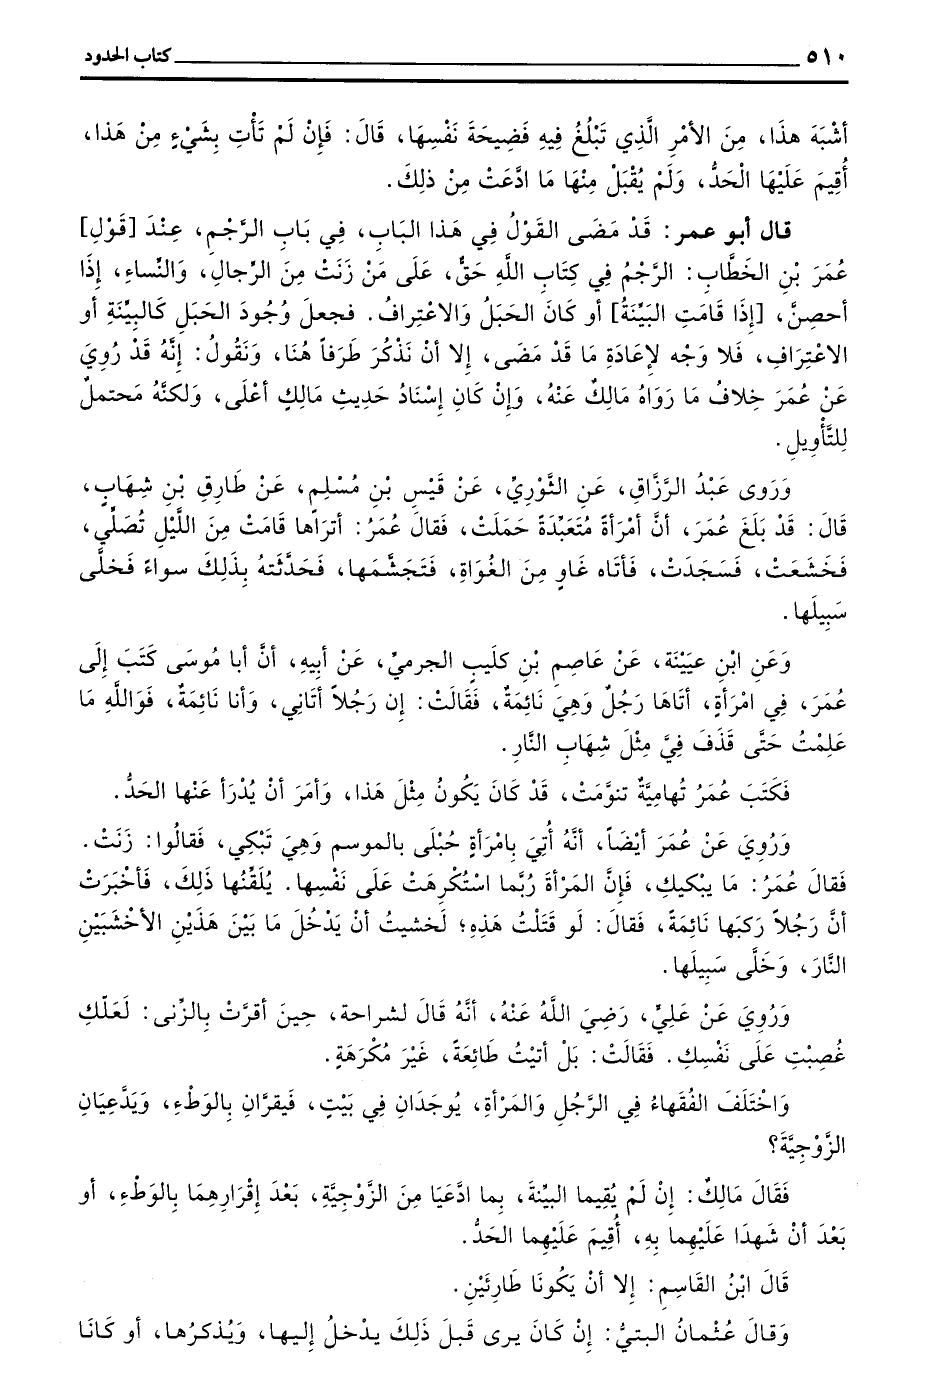 ٥١٠ كتاب الحدود
أشْبَهَ هذَا، مِنَ الأمْرِ الَّذِي تَبْلُغُ فِيهِ فَضِيحَةَ نَفْسِهَا، قَالَ: فَإنْ لَمْ تَأْتِ بِشَيْءٍ مِنْ هَذا،
أُقِيمَ عَلَيْهَا الْحَدُّ، وَلَمْ يُقْبَلْ مِنْهَا مَا ادَّعَتْ مِنْ ذلِكَ.
قال أبو عمر: قَدْ مَضَى القَوْلُ فِي هَذا البَابِ، فِي بَابِ الرَّجْمِ، عِنْدَ [قَوْلِ]
عُمَرَ بْنِ الخَطَّابِ: الرَّجْمُ فِي كِتَابِ اللَّهِ حَقٌّ، عَلَى مَنْ زَنَتْ مِنَ الرِّجالِ، وَالنِّساءِ، إذَا
أحصِنَّ، [إذَا قَامَتِ البَيِّنَةُ] أو كَانَ الحَبَلُ وَالاعْتِرافُ. فجعلَ وُجُودَ الحَبَلِ كَالبيِّنَةِ أو
الاعْتِرَافِ، فَلا وَجْه لِإعَادَةِ مَا قَدْ مَضَى، إلا أنْ نَذْكُرَ طَرَفاً هُنَا، وَنَقُولُ: إنَّهُ قَدْ رُوِيَ
عَنْ عُمَرَ خِلافُ مَا رَوَاهُ مَالِكٌ عَنْهُ، وَإنْ كَانَ إسْنَادُ حَدِيثِ مَالِكٍ أعْلَى، وَلكنَّهُ مَحتملٌ
لِلتَّأْوِيلِ.
وَرَوى عَبْدُ الرَّزَّاقِ، عَنِ الثَّوْرِيِّ، عَنْ قَيْسِ بْنِ مُسْلِمٍ، عَنْ طَارِقِ بْنِ شِهَابٍ،
قَالَ: قَدْ بَلَغَ عُمَرَ، أنَّ أمْرَأةً مُتَعَبِّدَةً حَمَلَتْ، فَقَالَ عُمَرُ: أترَاها قَامَتْ مِنَ اللَّيْلِ تُصَلِّي،
فَخَشَعَتْ، فَسَجَدَتْ، فَأتَاه غَاوٍ مِنَ الغُوَاةِ، فَتَجَشَّمَها، فَحَدَّثَتهُ بِذَلِكَ سواءً فَخلَّى
سَبِيلَها.
وَعَنِ ابْنِ عيَيْنَة، عَنْ عَاصِمِ بْنِ كلَيبٍ الجرميِّ، عَنْ أبِيهِ، أنَّ أبا مُوسَى كَتَبَ إلَى
عُمَرَ، فِي امْرَأةٍ، أتَاهَا رَجُلٌ وَهِيَ نَائِمَةٌ، فَقَالَتْ: إن رَجُلاً أتَانِي، وَأنا نَائِمَةٌ، فَوَاللَّهِ مَا
عَلِمْتُ حَتَّى قَذَفَ فِيَّ مِثْلَ شِهَابِ النَّارِ.
فَكَتَبَ عُمَرُ تُهامِيَّةٌ تنوَّمَتْ، قَدْ كَانَ يَكُونُ مِثْلَ هَذا، وَأمَرَ أنْ يُدْرَأ عَنْها الحَدُّ.
وَرُوِيَ عَنْ عُمَرَ أيْضَاً، أنَّهُ أُتِيَ بِامْرَأةٍ حُبْلَى بالموسم وَهِيَ تَبْكِي، فَقالُوا: زَنَتْ.
فَقالَ عُمَرُ: مَا يبْكيكِ، فَإنَّ المَرْأةَ رُبَّما اسْتُكْرِهَتْ عَلَى نَفْسِها. يُلَقِّنُها ذَلِكَ، فَأخْبَرَتْ
أنَّ رَجُلاً رَكبَها نَائِمَةً، فَقالَ: لَو قَتَلْتُ هَذِهِ؛ لَخشيتُ أنْ يَدْخُلَ مَا بَيْنَ هَذَيْنِ الأخْشَبَيْنِ
النَّارَ، وَخَلَّى سَبِيلَها.
وَرُوِيَ عَنْ عَلِيٍّ، رَضِيَ اللَّهُ عَنْهُ، أنَّهُ قَالَ لشراحة، حِينَ أقرَّتْ بِالزِّنى: لَعَلّكِ
غُصِبْتِ عَلَى نَفْسِكِ. فَقَالَتْ: بَلْ أتيْتُ طَائِعَةً، غَيْرَ مُكْرَهَةٍ.
وَاخْتَلَفَ الفُقَهاءُ فِي الرَّجُلِ وَالمَرْأةِ، يُوجَدَانِ فِي بَيْتٍ، فَيقرَّانِ بِالوَطْءِ، وَيَدَّعِيَانِ
الزَّوْجِيَّةَ؟
فَقَالَ مَالِكٌ: إنْ لَمْ يُقِيما البيِّنةَ، بِما ادَّعَيَا مِنَ الزَّوْجِيَّةِ، بَعْدَ إقْرَارِهِمَا بِالوَطْءِ، أو
بَعْدَ أنْ شَهدَا عَلَيْهِما بِهِ، أُقِيمَ عَلَيْهِما الحَدُّ.
قَالَ ابْنُ القَاسِمِ: إلا أنْ يَكُونَا طَارِئَيْنِ.
وَقالَ عُثْمانُ البتيُّ: إنْ كَانَ يرى قَبلَ ذَلِكَ يدْخلُ إليها، وَيُذكرُها، أو كَانَا